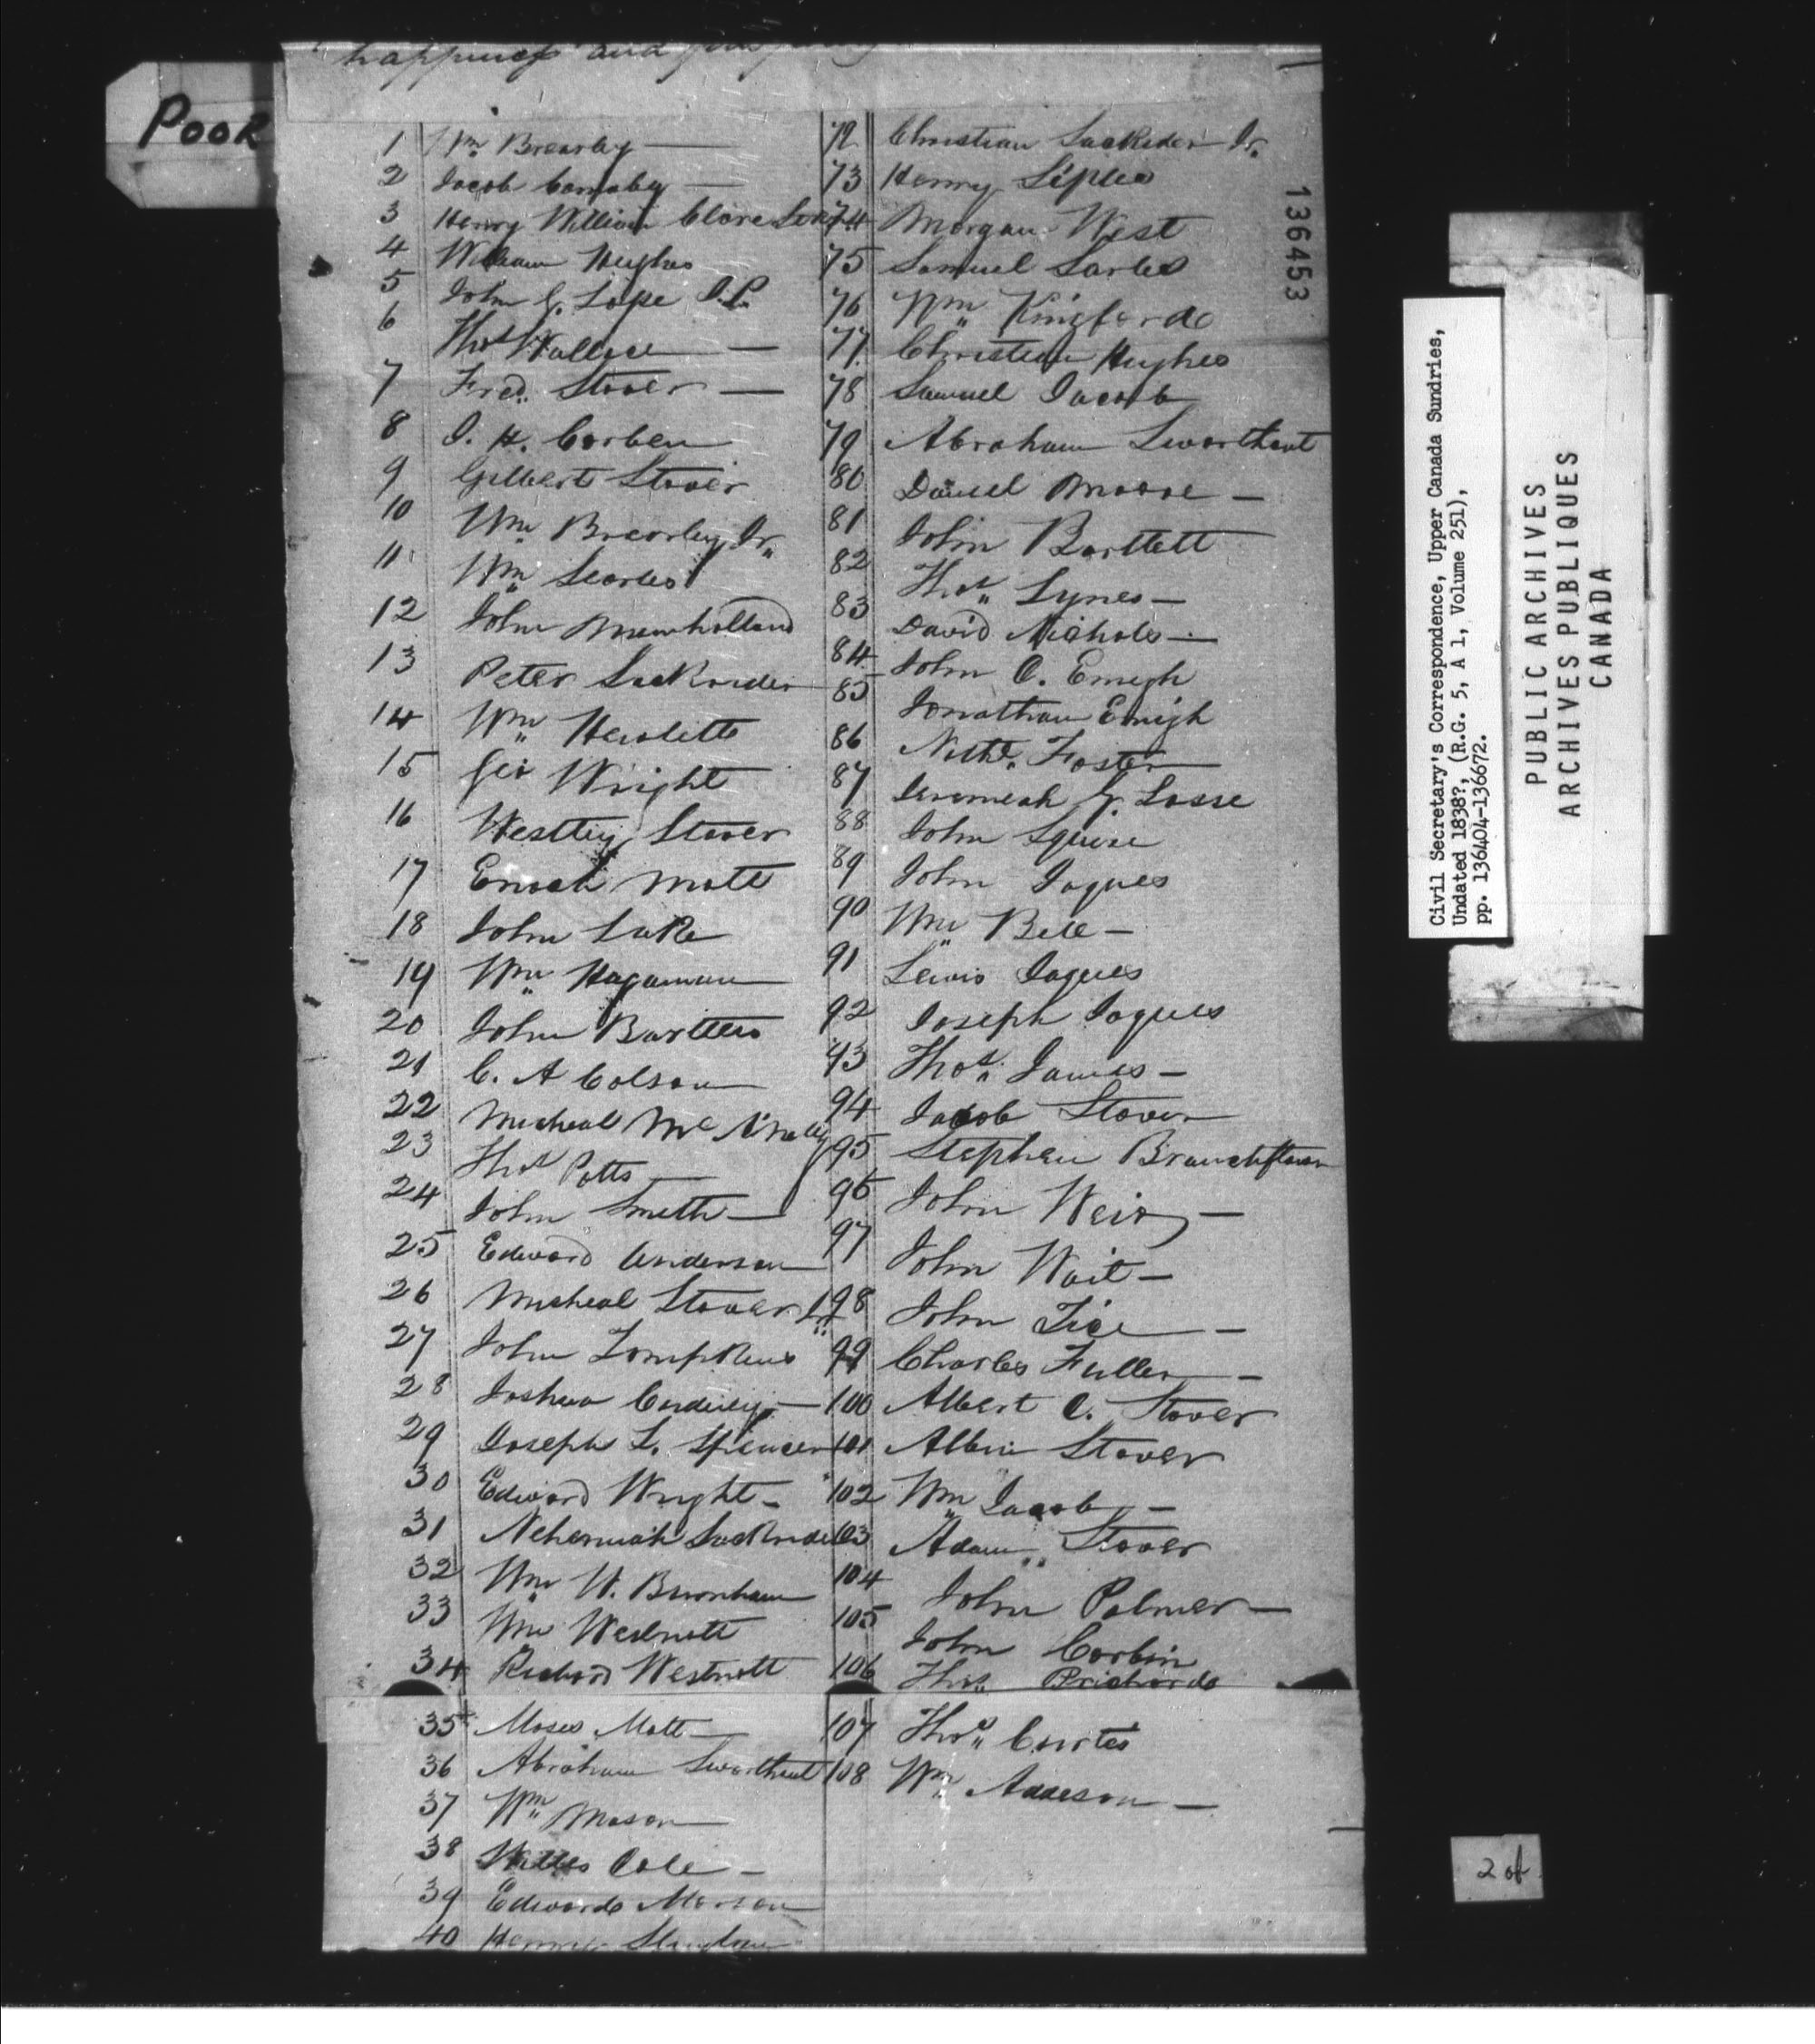 happiness and
POOR
136453
1 Wm Brearley
2 Jacob Carnaby
3 Henry William Clare
4 William Hughes
5 John G. Lossee J.P.
6 Thos Wallace
7 Fred. Stover
8 J. H. Corben
9 Gilbert Stover
10 Wm Brearley Jr.
11 Wm Searles
12 John Mewholland
13 Peter Lackrider
14 Wm Hewlette
15 Geo Wright
16 Stover
17 Enoch Mott
18 John Lake
19 Wm Hagaman
20 John Bartlett
21 C. A Colson
22 Micheal Mc
23 Thos Potts
24 John Smith
25 Edward Anderson
26 Micheal Stover Sr
27 John Tompkins
28 Joshua
29 Joseph L. Spencer
30 Edward Wright
31 Nehemiah Lackrider
32 Wm W. Burnham
33 Wm Westnott
34 Richard Westnott
35 Moses Mott
36 Abraham Swarthout
37 Wm Mason
38 Cole
39 Edward
40
72 Christian Lackrider Jr.
73 Henry Siples
74 Morgan West
75 Samuel Sarles
76 Wm Kingford
77 Christian Hughes
78 Samuel Jacob
79 Abraham Swarthout
80 Daniel Moore
81 John Bartlett
82 Thos Lynes
83 David Nichols
84 John C. Emigh
85 Jonathan Emigh
86 Nathl. Foster
87 Jeremeah G. Losse
88 John Squire
89 John Jaques
90 Wm Bell
91 Lewis Jaques
92 Joseph Jaques
93 Thos James
94 Jacob Stover
95 Stephen
96 John Weir
97 John Wait
98 John Tice
99 Charles Fuller
100 Albert C. Stover
101 Albin Stover
102 Wm Jacob
103 Adam Stover
104 John Palmer
105 John Corbin
106 Thos Prichard
107 Thos Curtes
108 Wm Adaeson
Civil Secretary's Correspondence, Upper Canada Sundries,
Undated 1838?, (R.G. 5, A 1, Volume 251),
pp. 136404-136672.
PUBLIC ARCHIVES
ARCHIVES PUBLIQUES
CANADA
2 of